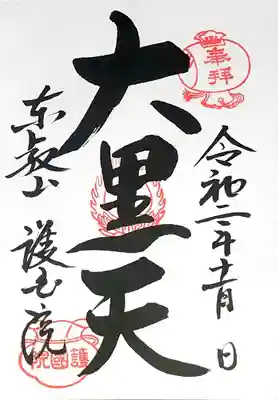 奉拝
令和二年十二月 日
大黒天
東叡山 護国院
護國院